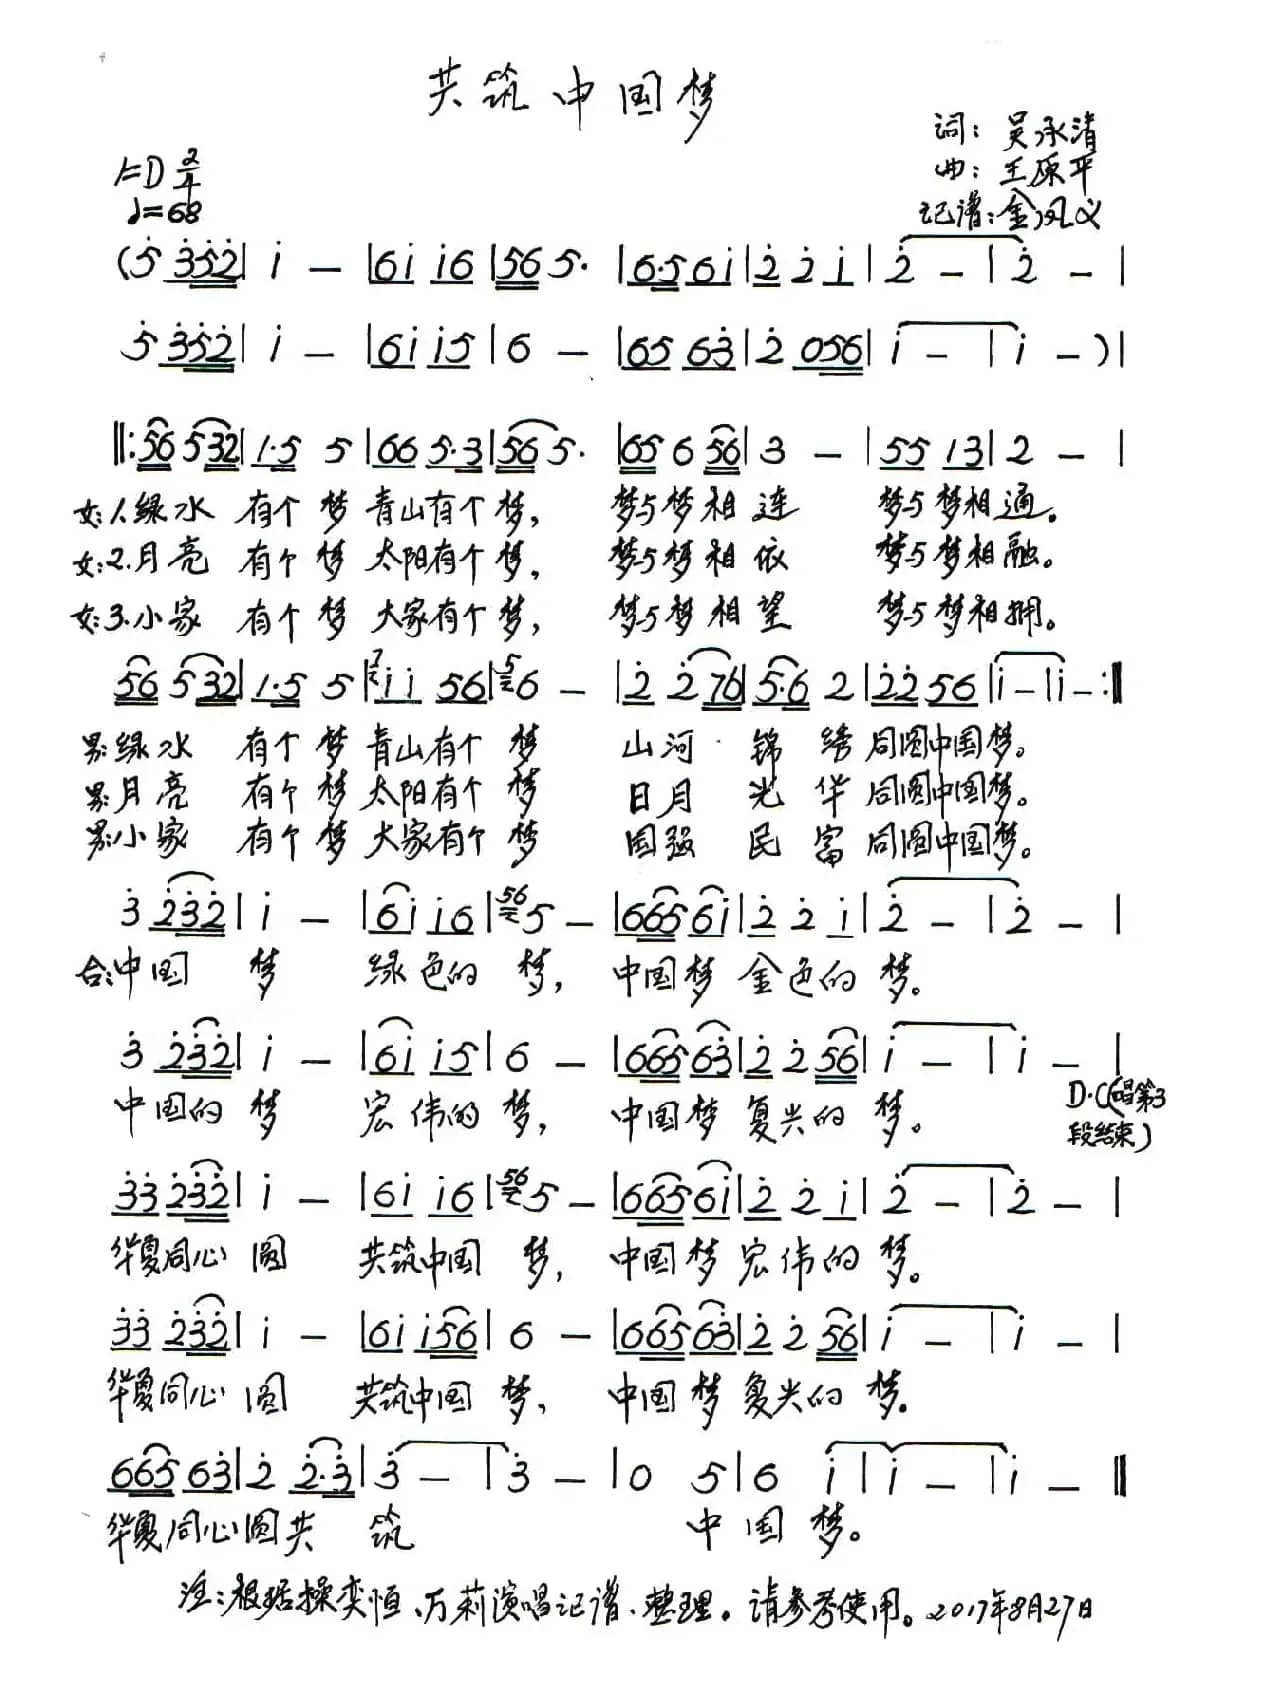 共筑中国梦
词：吴承清
1=D 2/4
曲：王原平
♩=68
记谱：金凤义
(5̇ 3̇5̇2̇ | i – | 6i i6 | 56 5· | 6·5 6i | 2̇ 2̇ i | 2̇ – | 2̇ – |
5̇ 3̇5̇2̇ | i – | 6i i5 | 6 – | 65 63̇ | 2̇ 056 | i – | i – ) |
‖: 56 532 | 1·5 5 | 66 5·3 | 56 5· | 65 6 56 | 3 – | 55 13 | 2 – |
女：1.绿水 有个 梦 青山有个 梦， 梦与梦相 连 梦与梦相通。
女：2.月亮 有个 梦 太阳有个 梦， 梦与梦相 依 梦与梦相融。
女：3.小家 有个 梦 大家有个 梦， 梦与梦相 望 梦与梦相拥。
56 532 | 1·5 5 | 7 i i 56 | 5 6 – | 2̇ 2̇ 76 | 5·6 2 | 2̇2̇ 56 | i – | i – :‖
男：绿水 有个 梦 青山有个 梦 山河 锦 绣 同圆中国梦。
男：月亮 有个 梦 太阳有个 梦 日月 光 华 同圆中国梦。
男：小家 有个 梦 大家有个 梦 国强 民 富 同圆中国梦。
3̇ 2̇3̇2̇ | i – | 6i i6 | 56 5 – | 665 6i | 2̇ 2̇ i | 2̇ – | 2̇ – |
合：中国 梦 绿色的 梦， 中国梦 金色的 梦。
3̇ 2̇3̇2̇ | i – | 6i i5 | 6 – | 665 63̇ | 2̇ 2̇ 56 | i – | i – |
中国的 梦 宏伟的 梦， 中国梦 复兴的 梦。
D·C(唱第3
段结束)
3̇3̇ 2̇3̇2̇ | i – | 6i i6 | 56 5 – | 665 6i | 2̇ 2̇ i | 2̇ – | 2̇ – |
华夏同心 圆 共筑中国 梦， 中国梦 宏伟的 梦。
3̇3̇ 2̇3̇2̇ | i – | 6i i56 | 6 – | 665 63̇ | 2̇ 2̇ 56 | i – | i – |
华夏同心 圆 共筑中国 梦， 中国梦 复兴的 梦。
665 63̇ | 2̇ 2̇·3̇ | 3̇ – | 3̇ – | 0 5 | 6 i | i – | i – ‖
华夏同心圆共 筑 中 国 梦。
注：根据操奕恒、万莉演唱记谱、整理。请参考使用。2017年8月27日